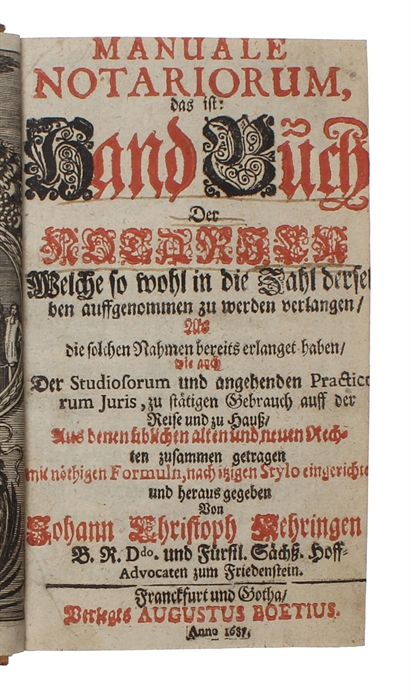 MANUALE
NOTARIORUM,
das ist:
Hand Buch
Der
NOTARIEN
Welche so wohl in die Zahl dersel
ben auffgenommen zu werden verlangen/
Als
die solchen Nahmen bereits erlanget haben/
wie auch
Der Studiosorum und angehenden Practico
rum Juris, zu stätigen Gebrauch auff der
Reise und zu Hauß/
Aus denen üblichen alten und neuen Rech-
ten zusammen getragen
mit nöthigen Formuln, nach itzigen Stylo eingerichte
und heraus gegeben
Von
Johann Christoph Nehringen
B. R. Ddo. und Fürstl. Sächß. Hoff-
Advocaten zum Friedenstein.
Franckfurt und Gotha/
Verlegts AUGUSTUS BOETIUS.
Anno 1687.